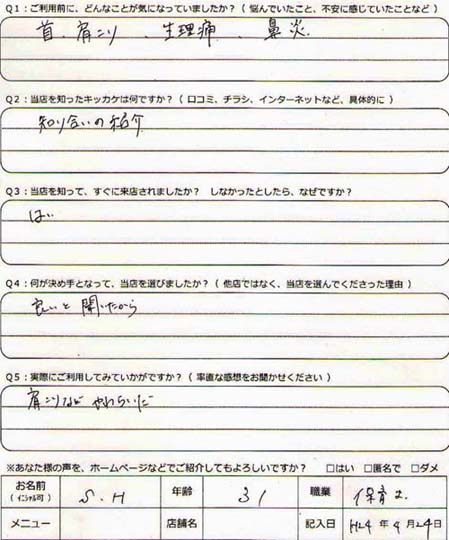 Q1：ご利用前に、どんなことが気になっていましたか？（悩んでいたこと、不安に感じていたことなど）
首、肩こり、生理痛、鼻炎
Q2：当店を知ったキッカケは何ですか？（口コミ、チラシ、インターネットなど、具体的に）
知り合いの紹介
Q3：当店を知って、すぐに来店されましたか？ しなかったとしたら、なぜですか？
はい
Q4：何が決め手となって、当店を選びましたか？（他店ではなく、当店を選んでくださった理由）
良いと聞いたから
Q5：実際にご利用してみていかがですか？（率直な感想をお聞かせください）
肩こりなど やわらいだ
※あなた様の声を、ホームページなどでご紹介してもよろしいですか？ □はい □匿名で □ダメ
お名前 S.H 年齢 31 職業 保育士
（イニシャル可）
メニュー 店舗名 記入日 H24年9月24日